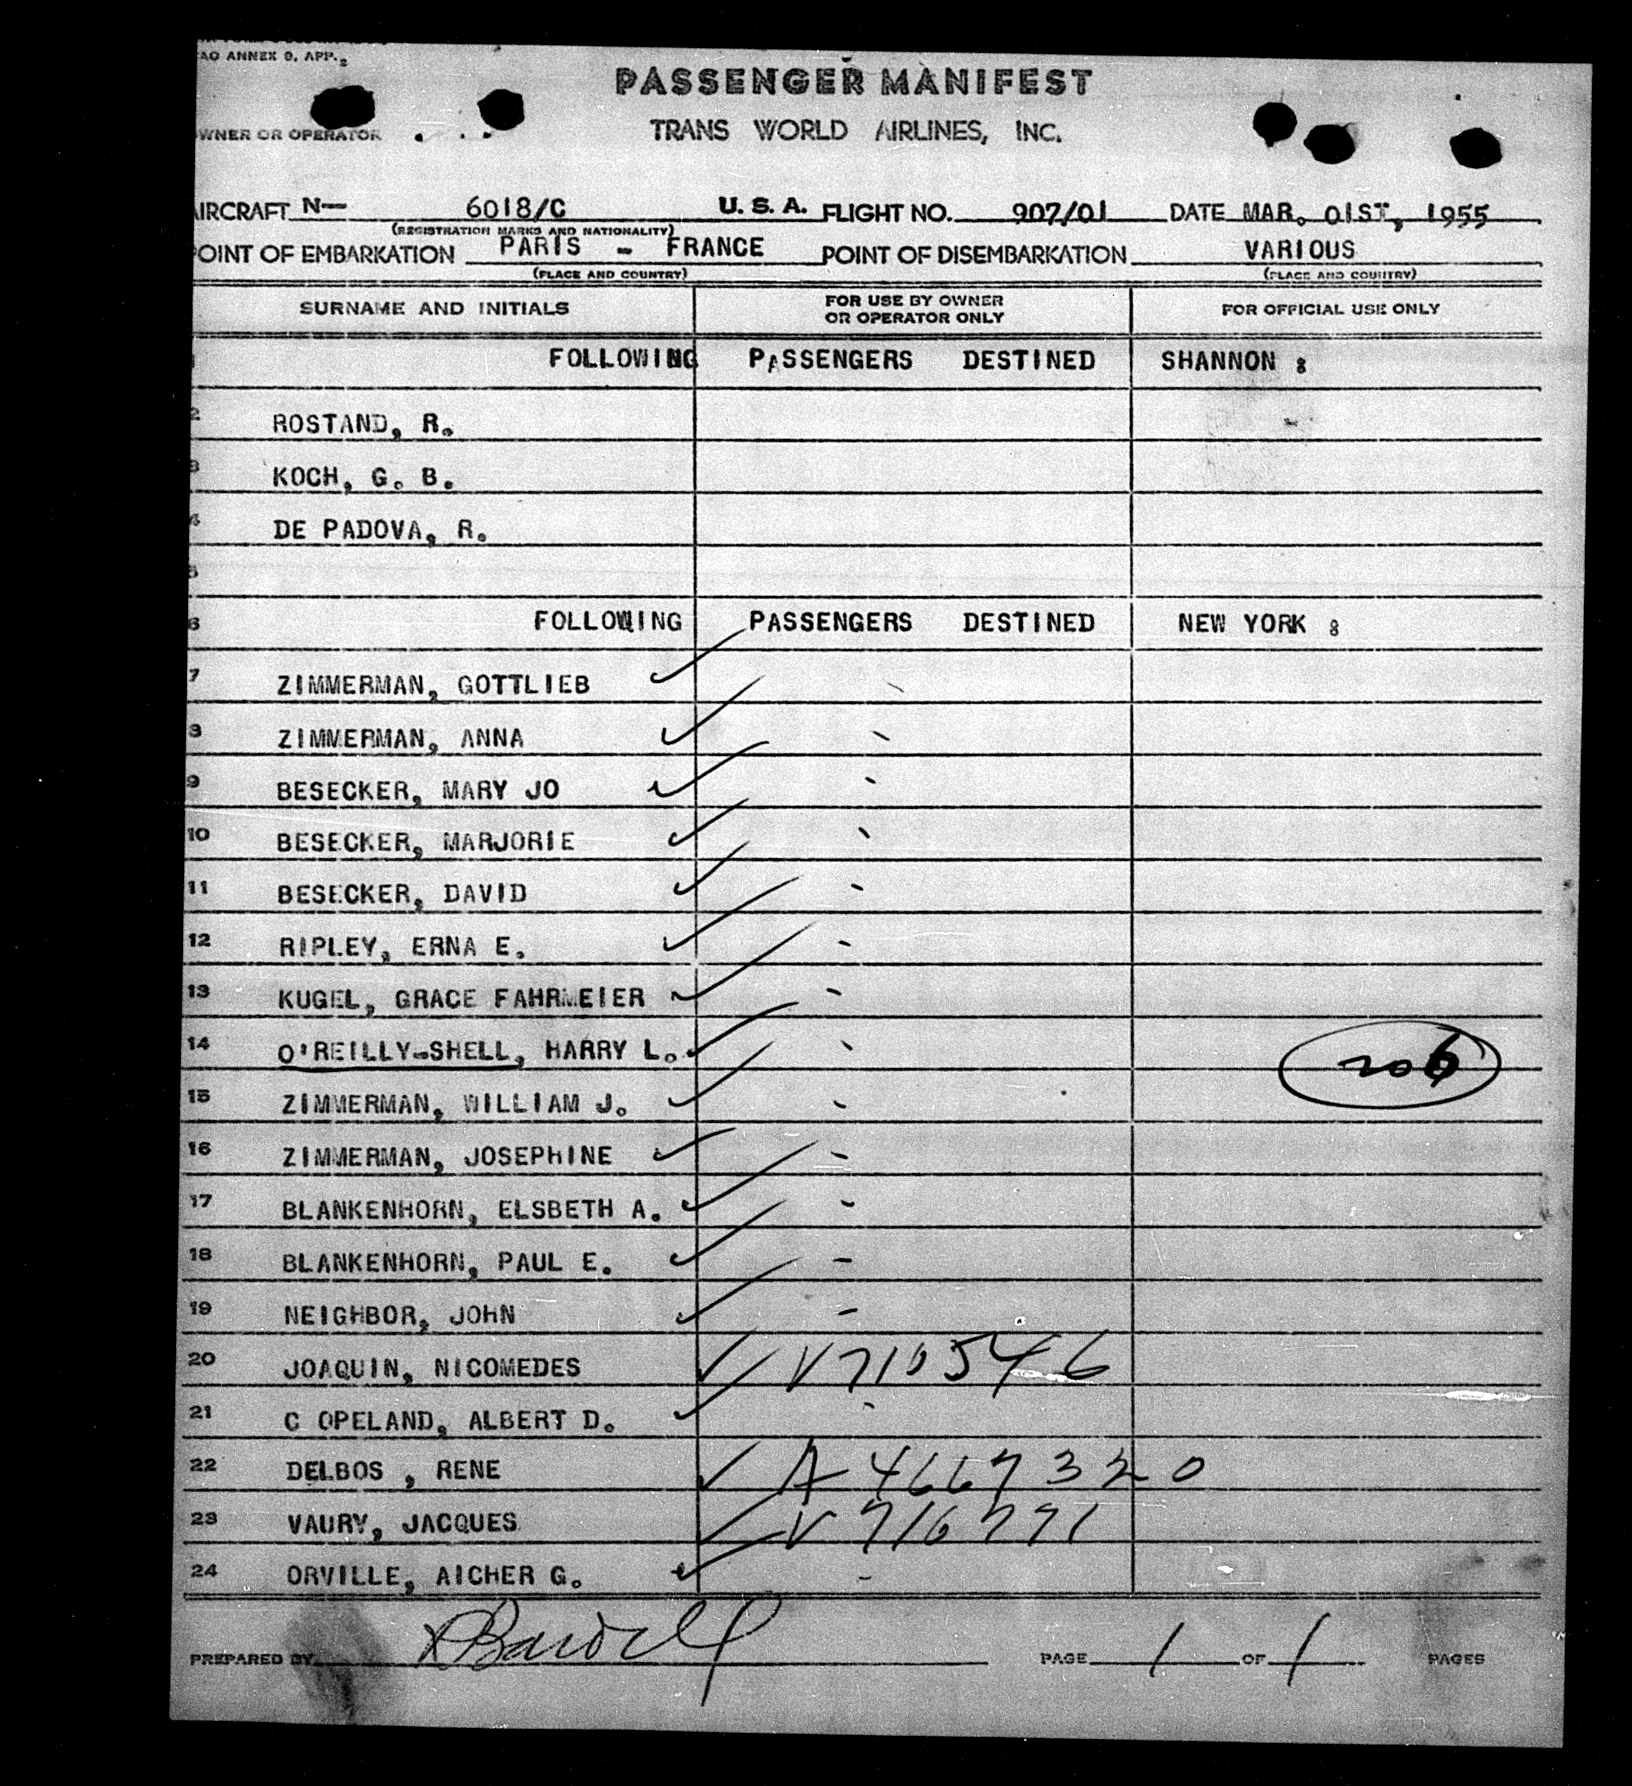 AO ANNEX 9, APP. 2
PASSENGER MANIFEST
OWNER OR OPERATOR
TRANS WORLD AIRLINES, INC.
AIRCRAFT N— 6018/C U. S. A. FLIGHT NO. 907/01 DATE MAR. 01ST, 1955
(REGISTRATION MARKS AND NATIONALITY)
POINT OF EMBARKATION PARIS - FRANCE POINT OF DISEMBARKATION VARIOUS
(PLACE AND COUNTRY) (PLACE AND COUNTRY)
SURNAME AND INITIALS FOR USE BY OWNER OR OPERATOR ONLY FOR OFFICIAL USE ONLY
1 FOLLOWING PASSENGERS DESTINED SHANNON :
2 ROSTAND, R.
3 KOCH, G. B.
4 DE PADOVA, R.
5
6 FOLLOWING PASSENGERS DESTINED NEW YORK :
7 ZIMMERMAN, GOTTLIEB
8 ZIMMERMAN, ANNA
9 BESECKER, MARY JO
10 BESECKER, MARJORIE
11 BESECKER, DAVID
12 RIPLEY, ERNA E.
13 KUGEL, GRACE FAHRMEIER
14 O'REILLY-SHELL, HARRY L. 206
15 ZIMMERMAN, WILLIAM J.
16 ZIMMERMAN, JOSEPHINE
17 BLANKENHORN, ELSBETH A.
18 BLANKENHORN, PAUL E.
19 NEIGHBOR, JOHN
20 JOAQUIN, NICOMEDES V710546
21 C OPELAND, ALBERT D.
22 DELBOS , RENE A 4667320
23 VAURY, JACQUES V 716771
24 ORVILLE, AICHER G.
PREPARED BY PAGE 1 OF 1 PAGES